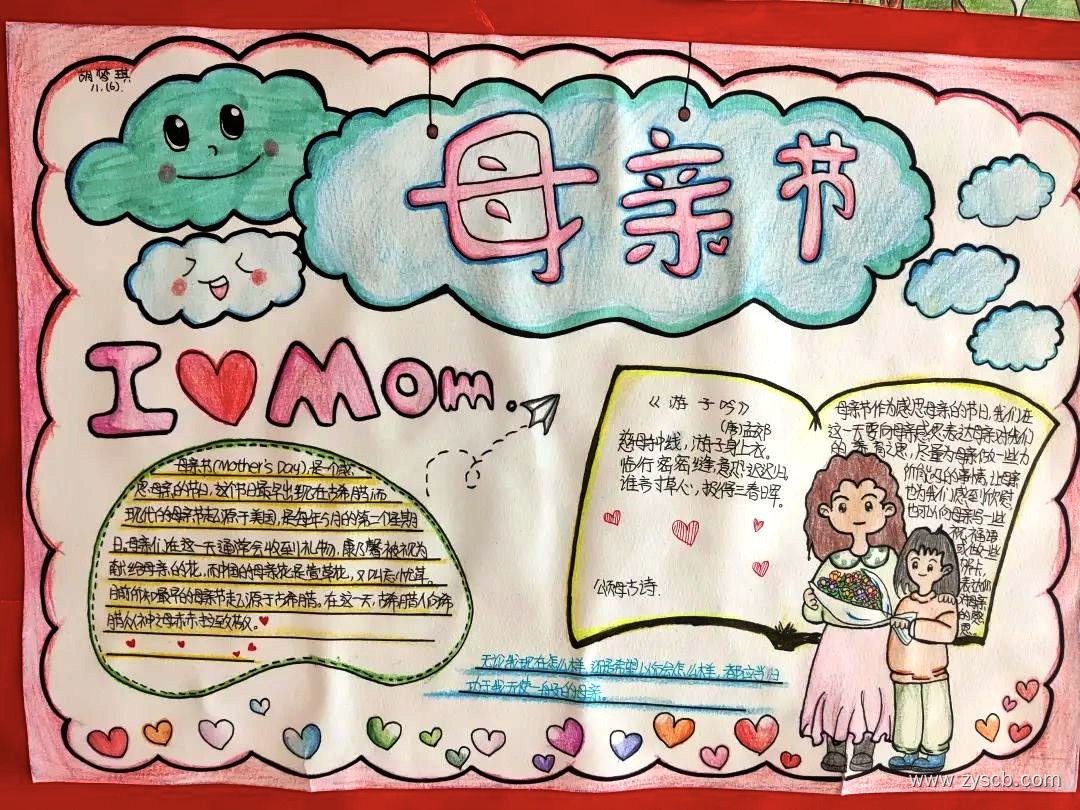 胡梦琪
八.(6).
母亲节
I Mom.
母亲节(Mother's Day),是个感
恩母亲的节日,这个节日最早出现在古希腊,而
现代的母亲节起源于美国,是每年5月的第二个星期
日。母亲们在这一天通常会收到礼物,康乃馨被视为
献给母亲的花,而中国的母亲花是萱草花,又叫忘忧草。
在这一天,古希腊人向希
致敬。
《游子吟》
(唐)孟郊
慈母手中线,游子身上衣。
临行密密缝,意恐迟迟归。
谁言寸草心,报得三春晖。
颂母古诗.
母亲节作为感恩母亲的节日,我们在
这一天要向母亲感恩表达母亲对我们
的养育之恩,尽量为母亲做一些力
所能及的事情,让母亲
也为我们感到欣慰,
也可以向母亲写一些
祝福语
或做一些
贺卡,
表达
对母亲
的感
恩。
无论我现在怎么样,还是希望以后会怎么样,都应当归
功于我天使一般的母亲。
www.zyscb.com